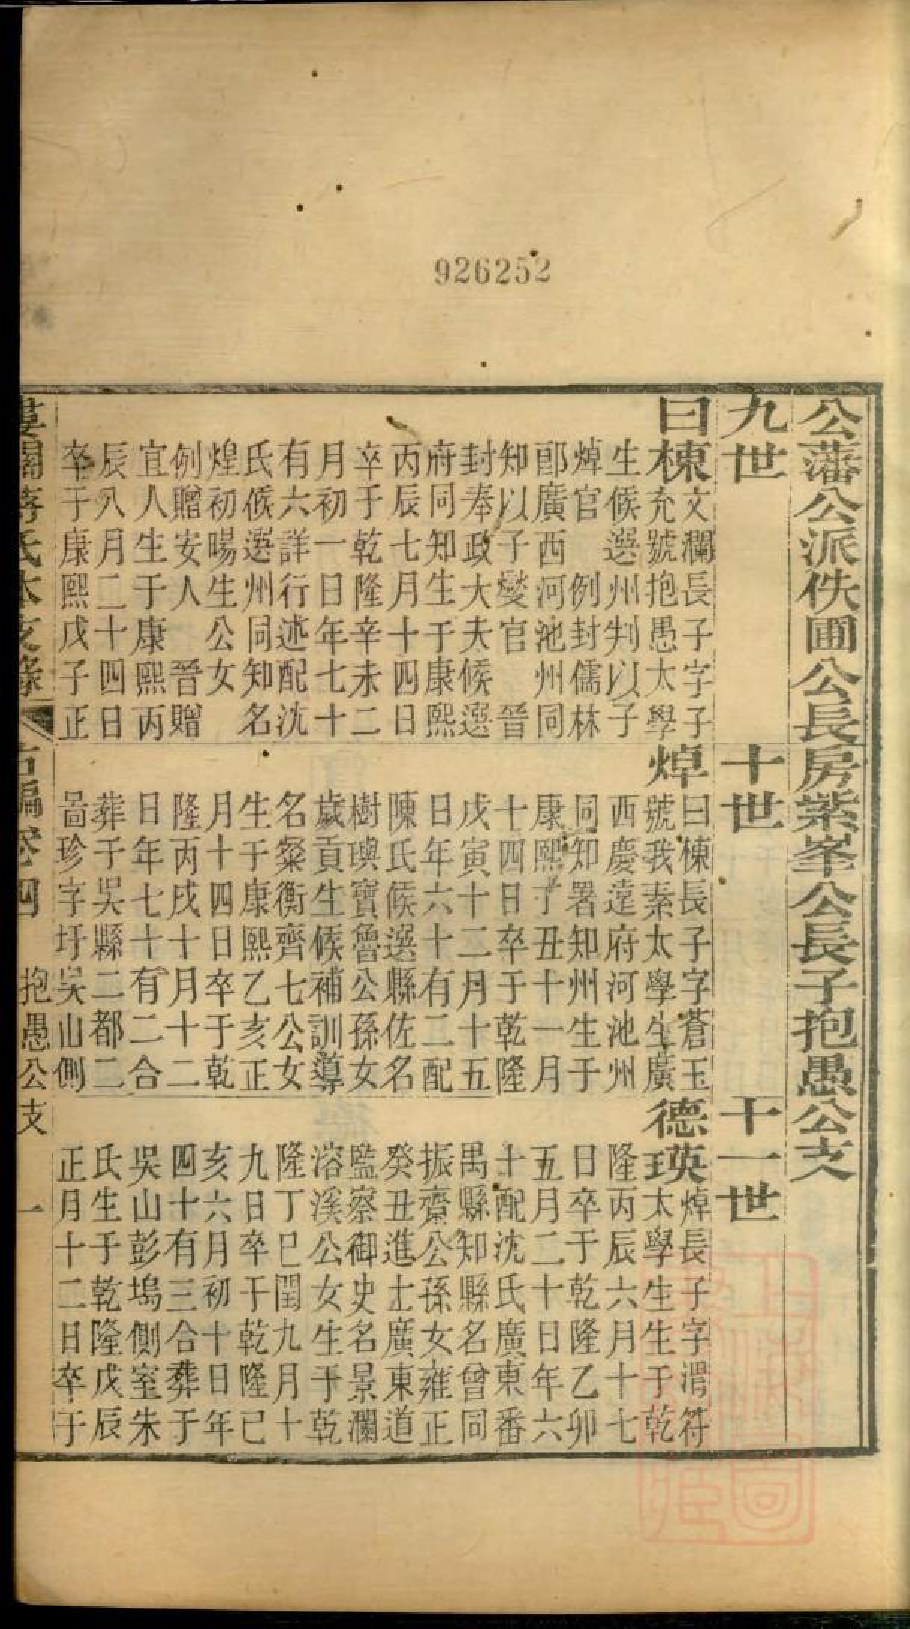 926252
公藩公派佚圃公長房紫峯公長子抱愚公支
九世
十世
十一世
曰棟文瀾長子字子
充號抱愚太學
生候選州判以子
焯官 例封儒林
郎廣西河池州同
知以子燮官 晉
封奉政大夫候選
府同知生于康熙
丙辰七月十四日
卒于乾隆辛未二
月初一日年七十
有六詳行述配沈
氏候選州同知名
煌初暘生公女
例贈安人 晉贈
宜人生于康熙丙
辰八月二十四日
卒于康熙戊子正
焯曰棟長子字蒼玉
號我素太學生廣
西慶遠府河池州
同知署知州生于
康熙丁丑十一月
十四日卒于乾隆
戊寅十二月十五
日年六十有二配
陳氏候選縣佐名
樹璵寶魯公孫女
歲貢生候補訓導
名粲衡齊七公女
生于康熙乙亥正
月十四日卒于乾
隆丙戌十月十二
日年七十有二合
葬于吳縣二都二
啚珍字圩吳山側
德瑛焯長子字渭符
太學生生于乾
隆丙辰六月十七
日卒于乾隆乙卯
五月二十日年六
十配沈氏廣東番
禺縣知縣名曾同
振齋公孫女雍正
癸丑進士廣東道
監察御史名景瀾
溶溪公女生于乾
隆丁巳閏九月十
九日卒于乾隆己
亥六月初十日年
四十有三合葬于
吳山彭塢側室朱
氏生于乾隆戊辰
正月十二日卒于
婁關蔣氏本支錄
右編卷四 抱愚公支 一